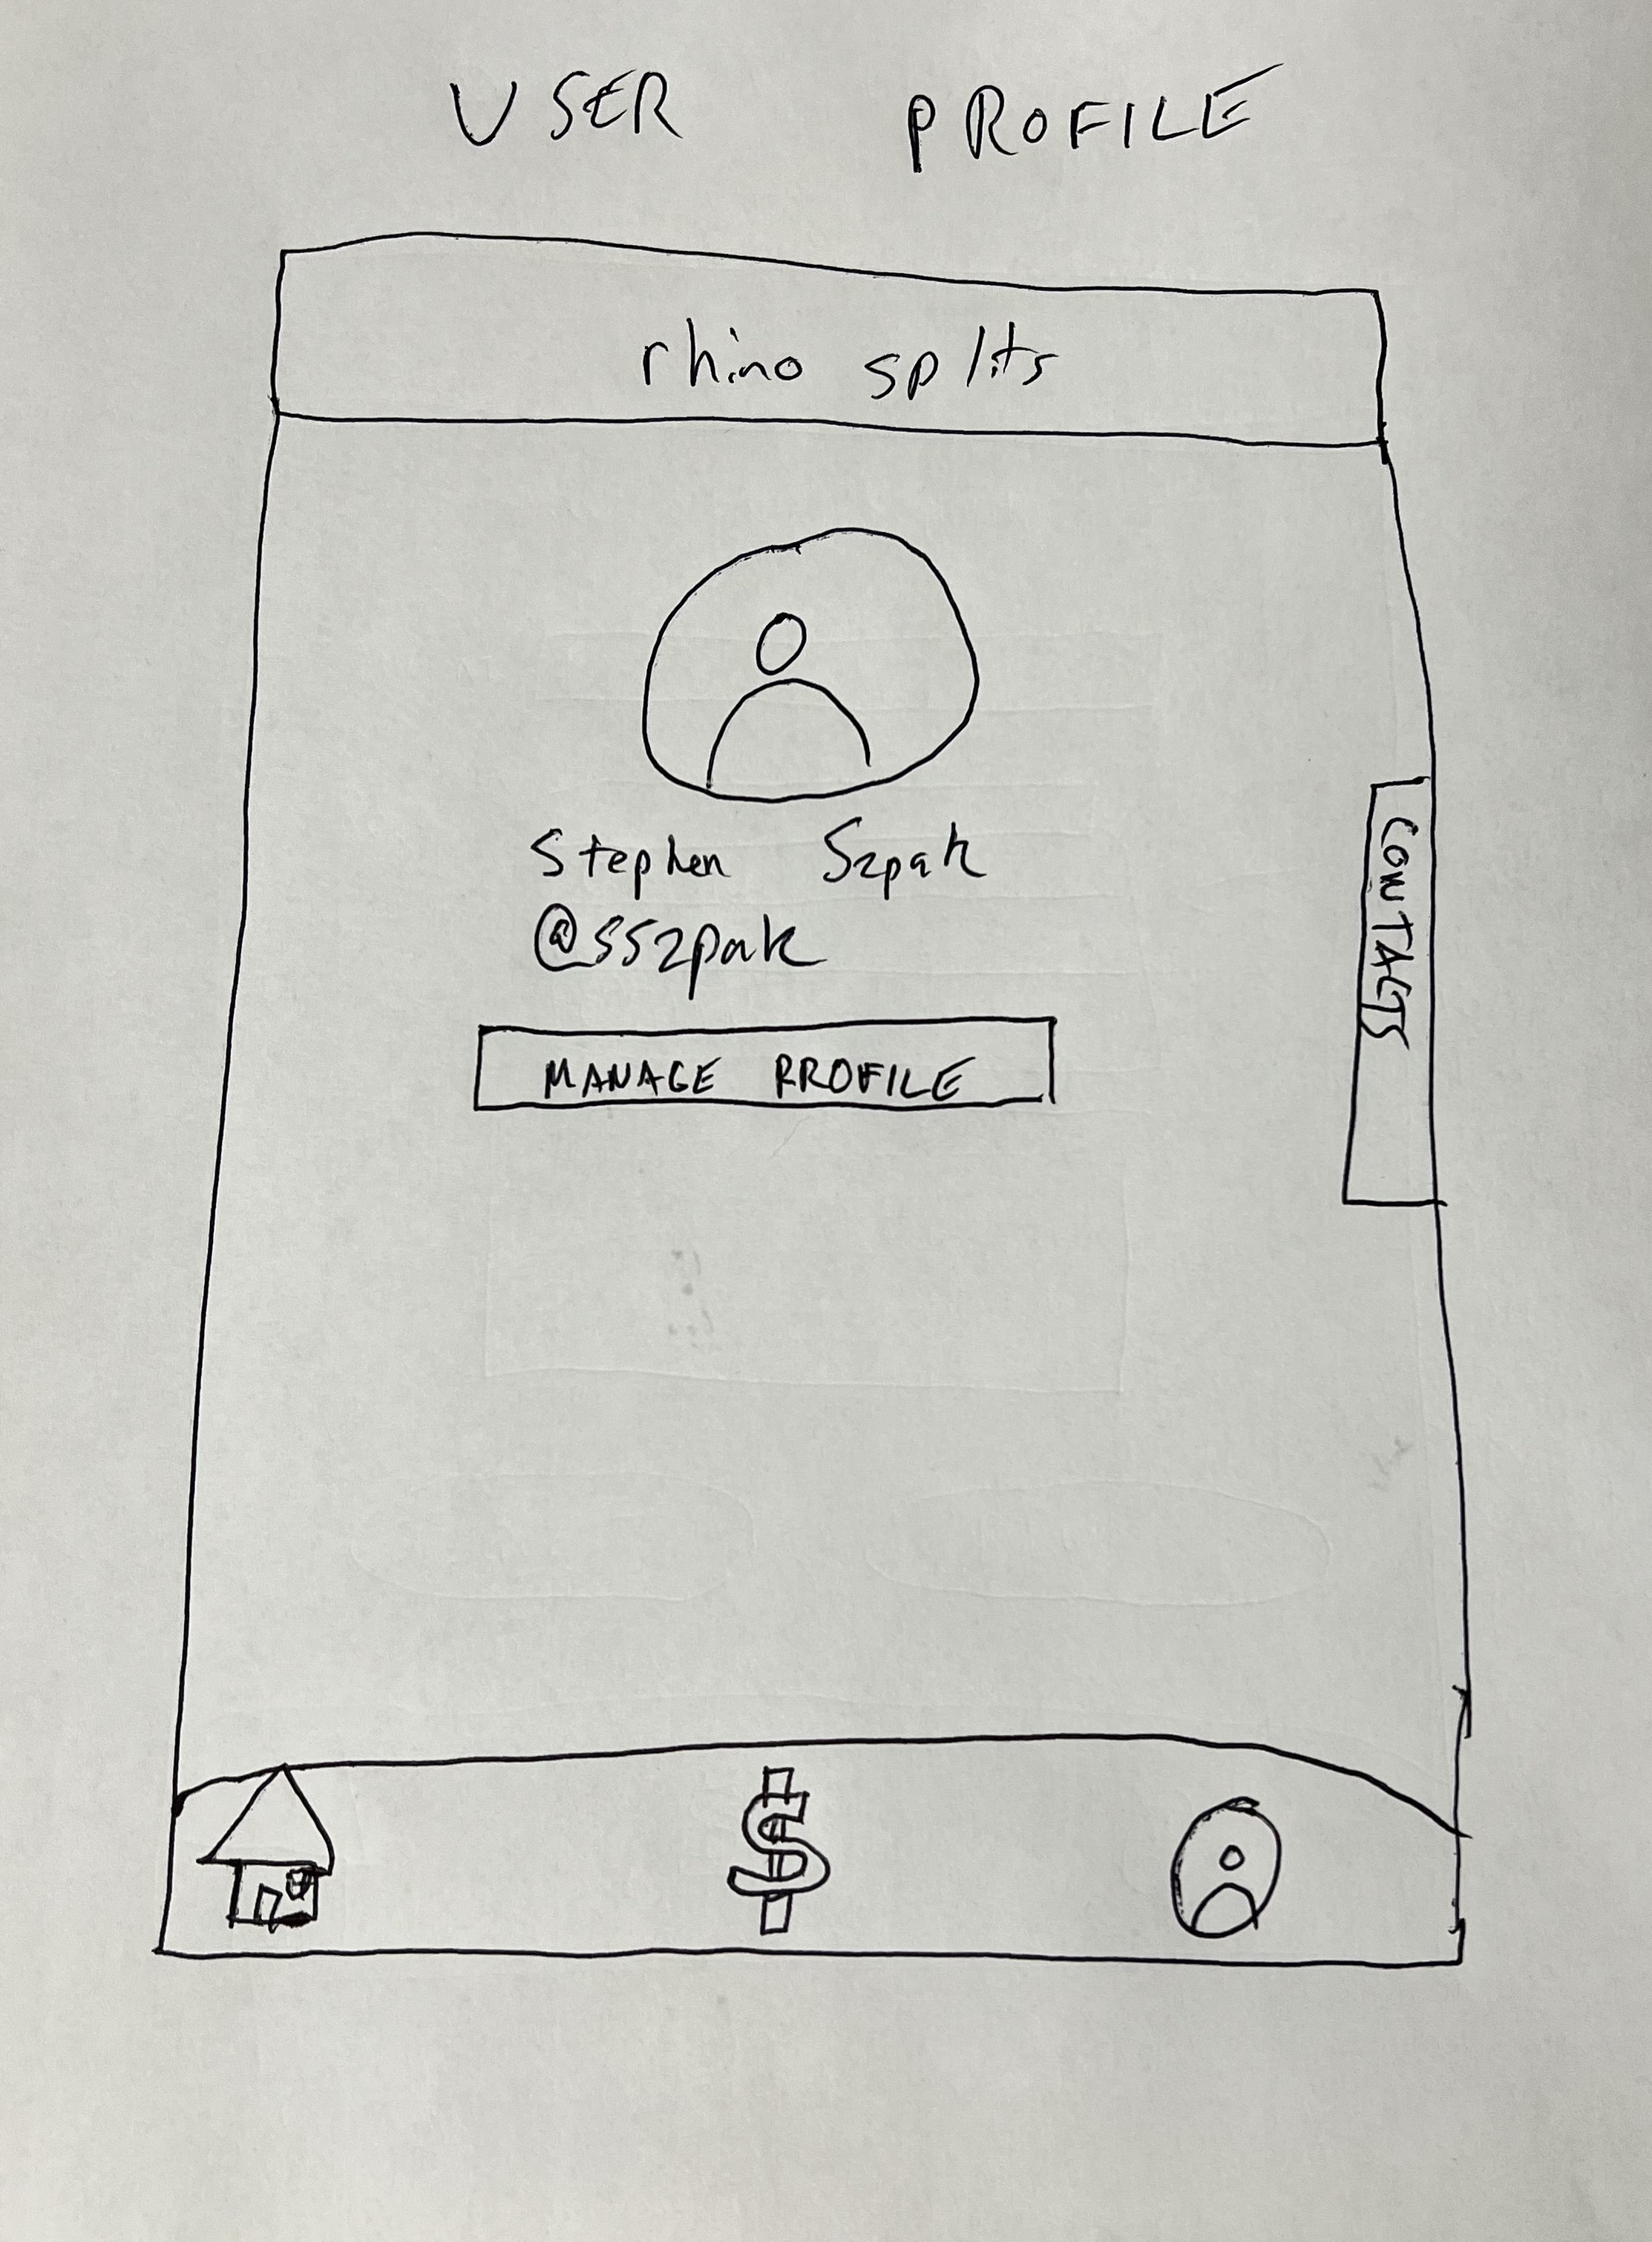 USER PROFILE
rhino splits
Stephen Szpak
@sszpak
MANAGE PROFILE
CONTACTS
$